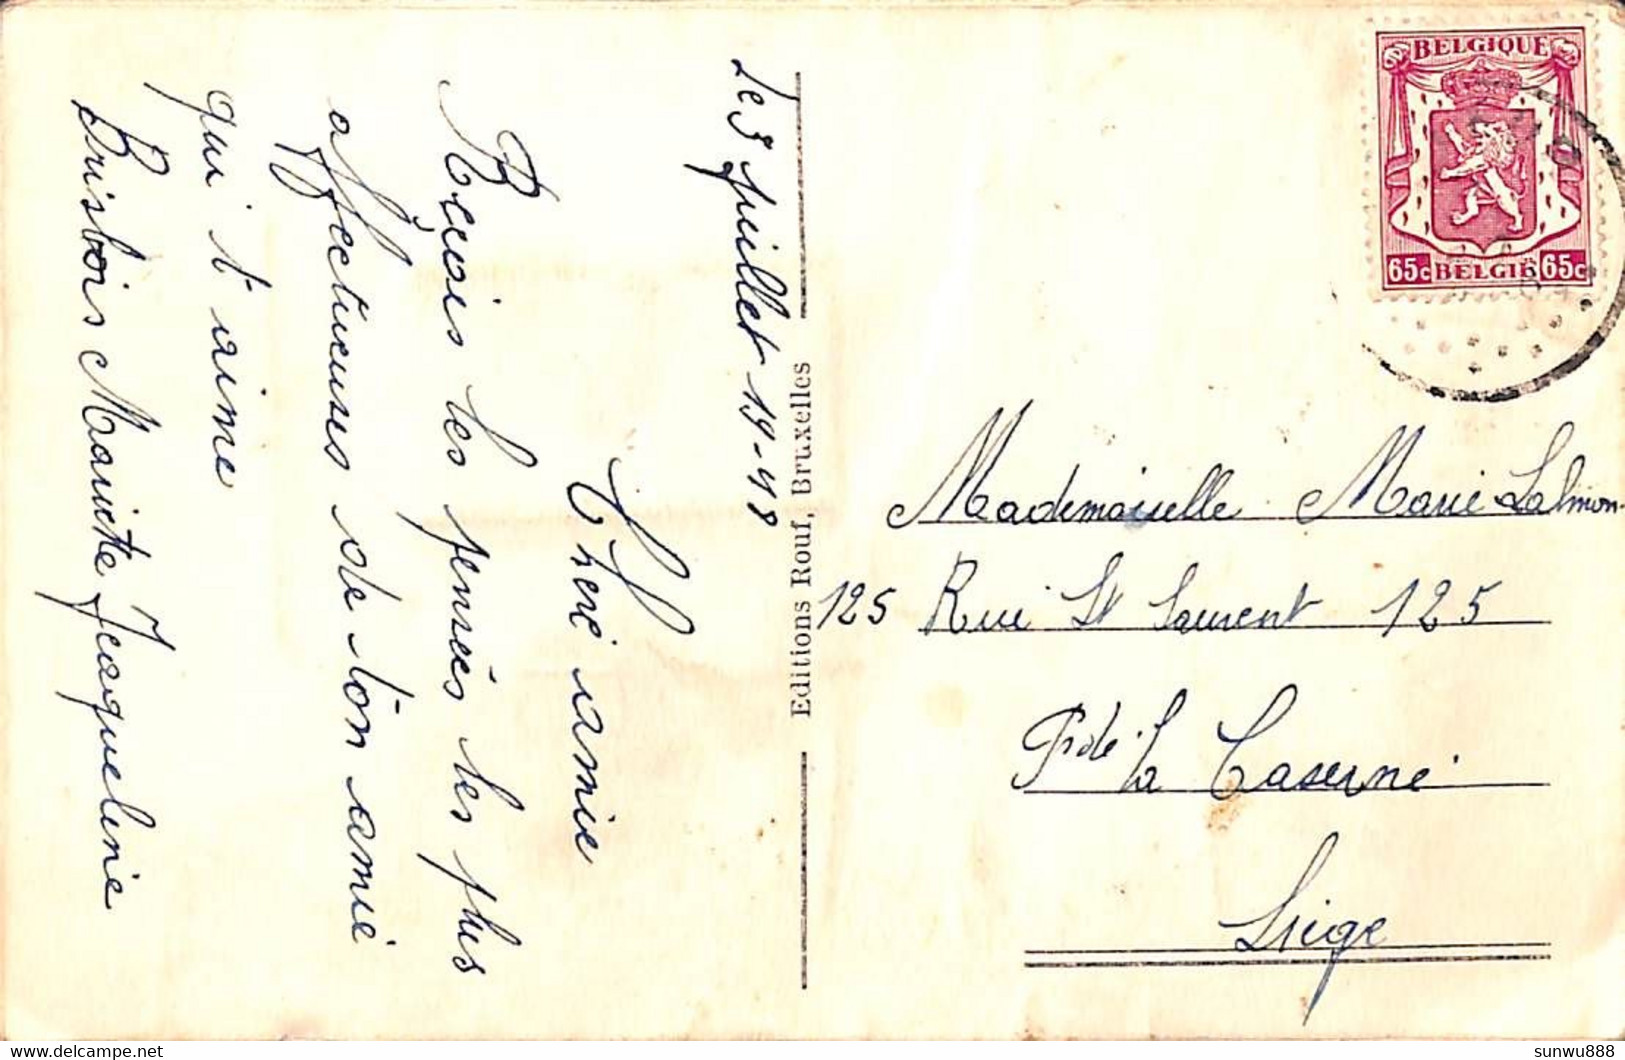 Le 3 juillet 19-48
Cheré amie
Recois les pensées les plus
affectueuses de t'on amié
qui t'aime
Brisbois Mariette Jacqueline
Editions Rouf, Bruxelles
BELGIQUE
65c BELGIË 65c
Mademoiselle Marie Salmon
125 Rue St Laurent 125
Pr de la Caserne
Liége
sunwu888